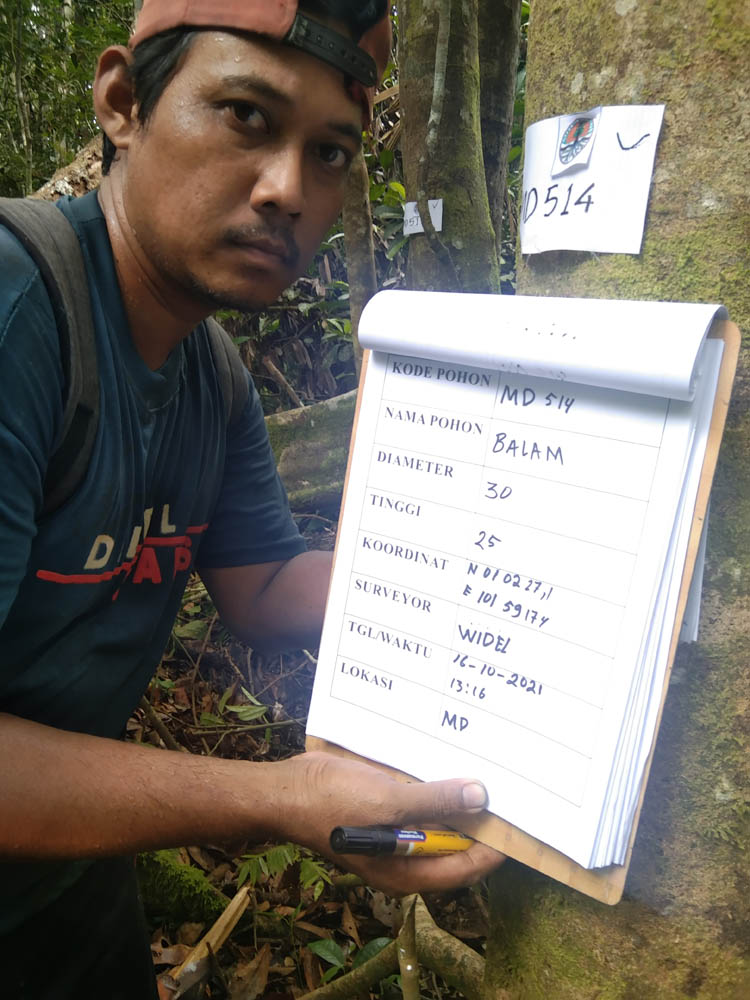 MD 514
KODE POHON MD 514
NAMA POHON BALAM
DIAMETER 30
TINGGI 25
KOORDINAT N 01 02 27,1
E 101 59 17 4
SURVEYOR WIDEL
TGL/WAKTU 16-10-2021
13:16
LOKASI MD